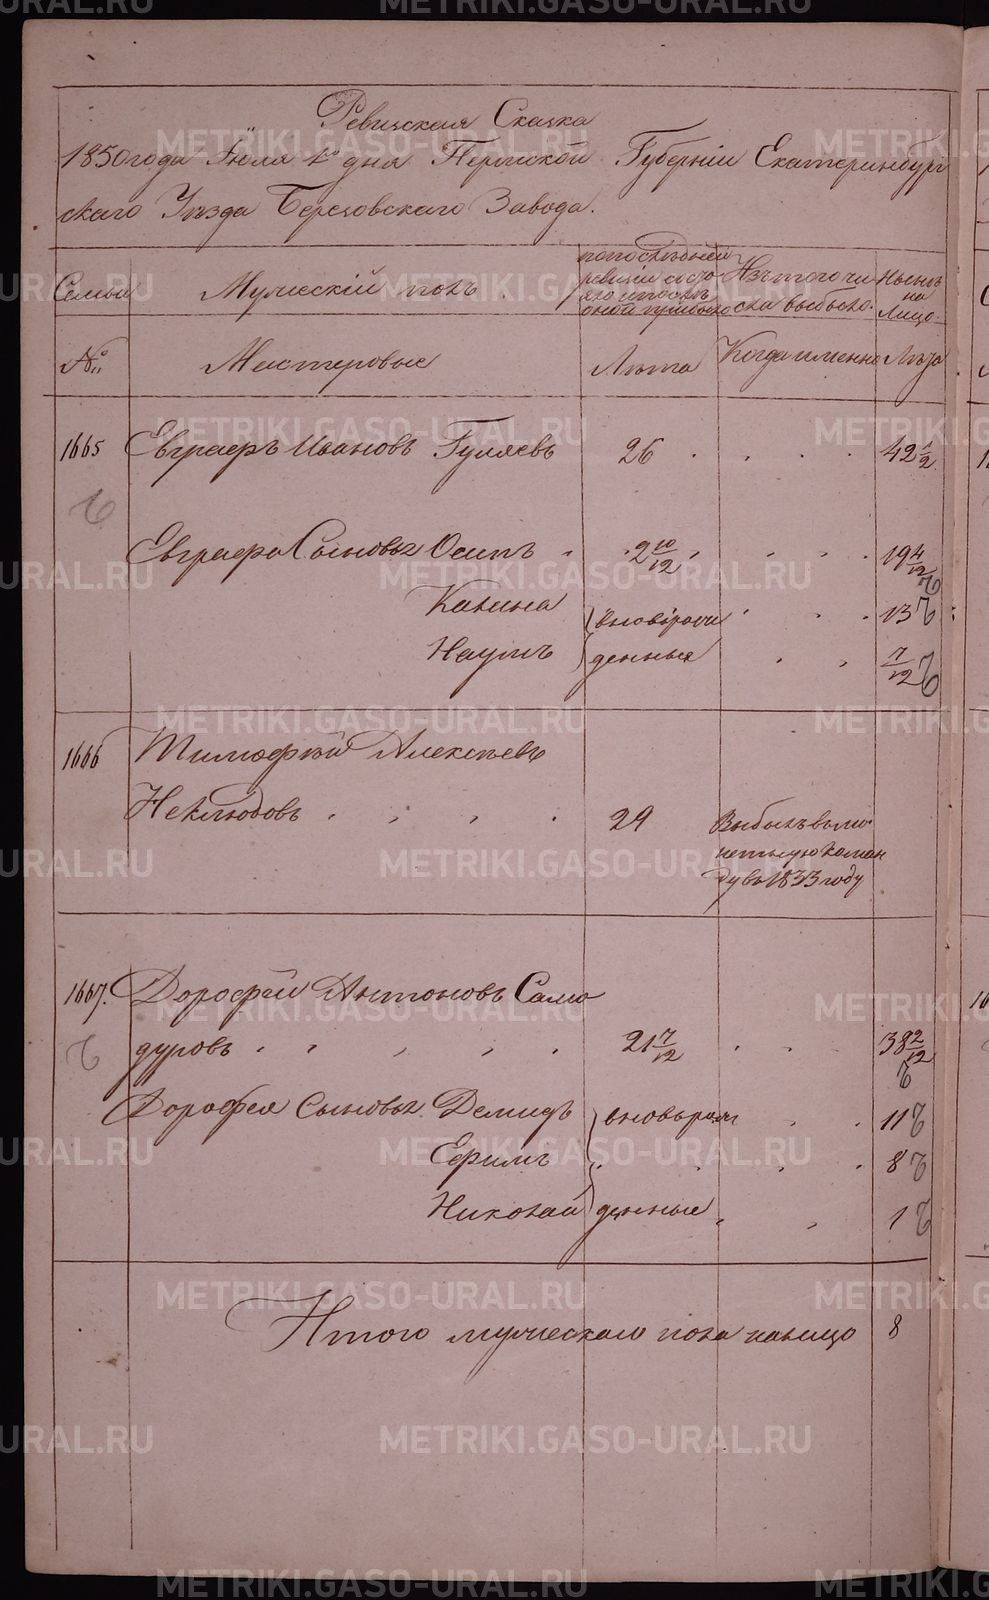 Ревизская Сказка
1850 года Июля 1го дня Пермской Губернiи Екатеринбург
скаго Уѣзда Березовскаго Завода.
Семьи Мужескiй полъ По последней ревизiи состо яло и послѣ оной прибыло Изъ того чи сла выбыло. Нынѣ на Лицо.
№ Мастеровые Лѣта Когда именно Лѣта
1665 Евграфъ Ивановъ Гуляевъ 26 42 1/2
Евграфа Сыновья Осипъ 2 10/12 19 4/12
Калина вноворож 13
Наумъ денные 7/12
1666 Тимофѣй Алексѣевъ
Неклюдовъ 29 Выбылъ во мо
нетную коман
ду въ 1833 году
1667. Дорофѣй Антоновъ Само
дуровъ 21 7/12 38 2/12
Дорофея Сыновья Демидъ вновьрож 11
Ефимъ 8
Николай денные 1
Итого мужескаго пола налицо 8
METRIKI.GASO-URAL.RU